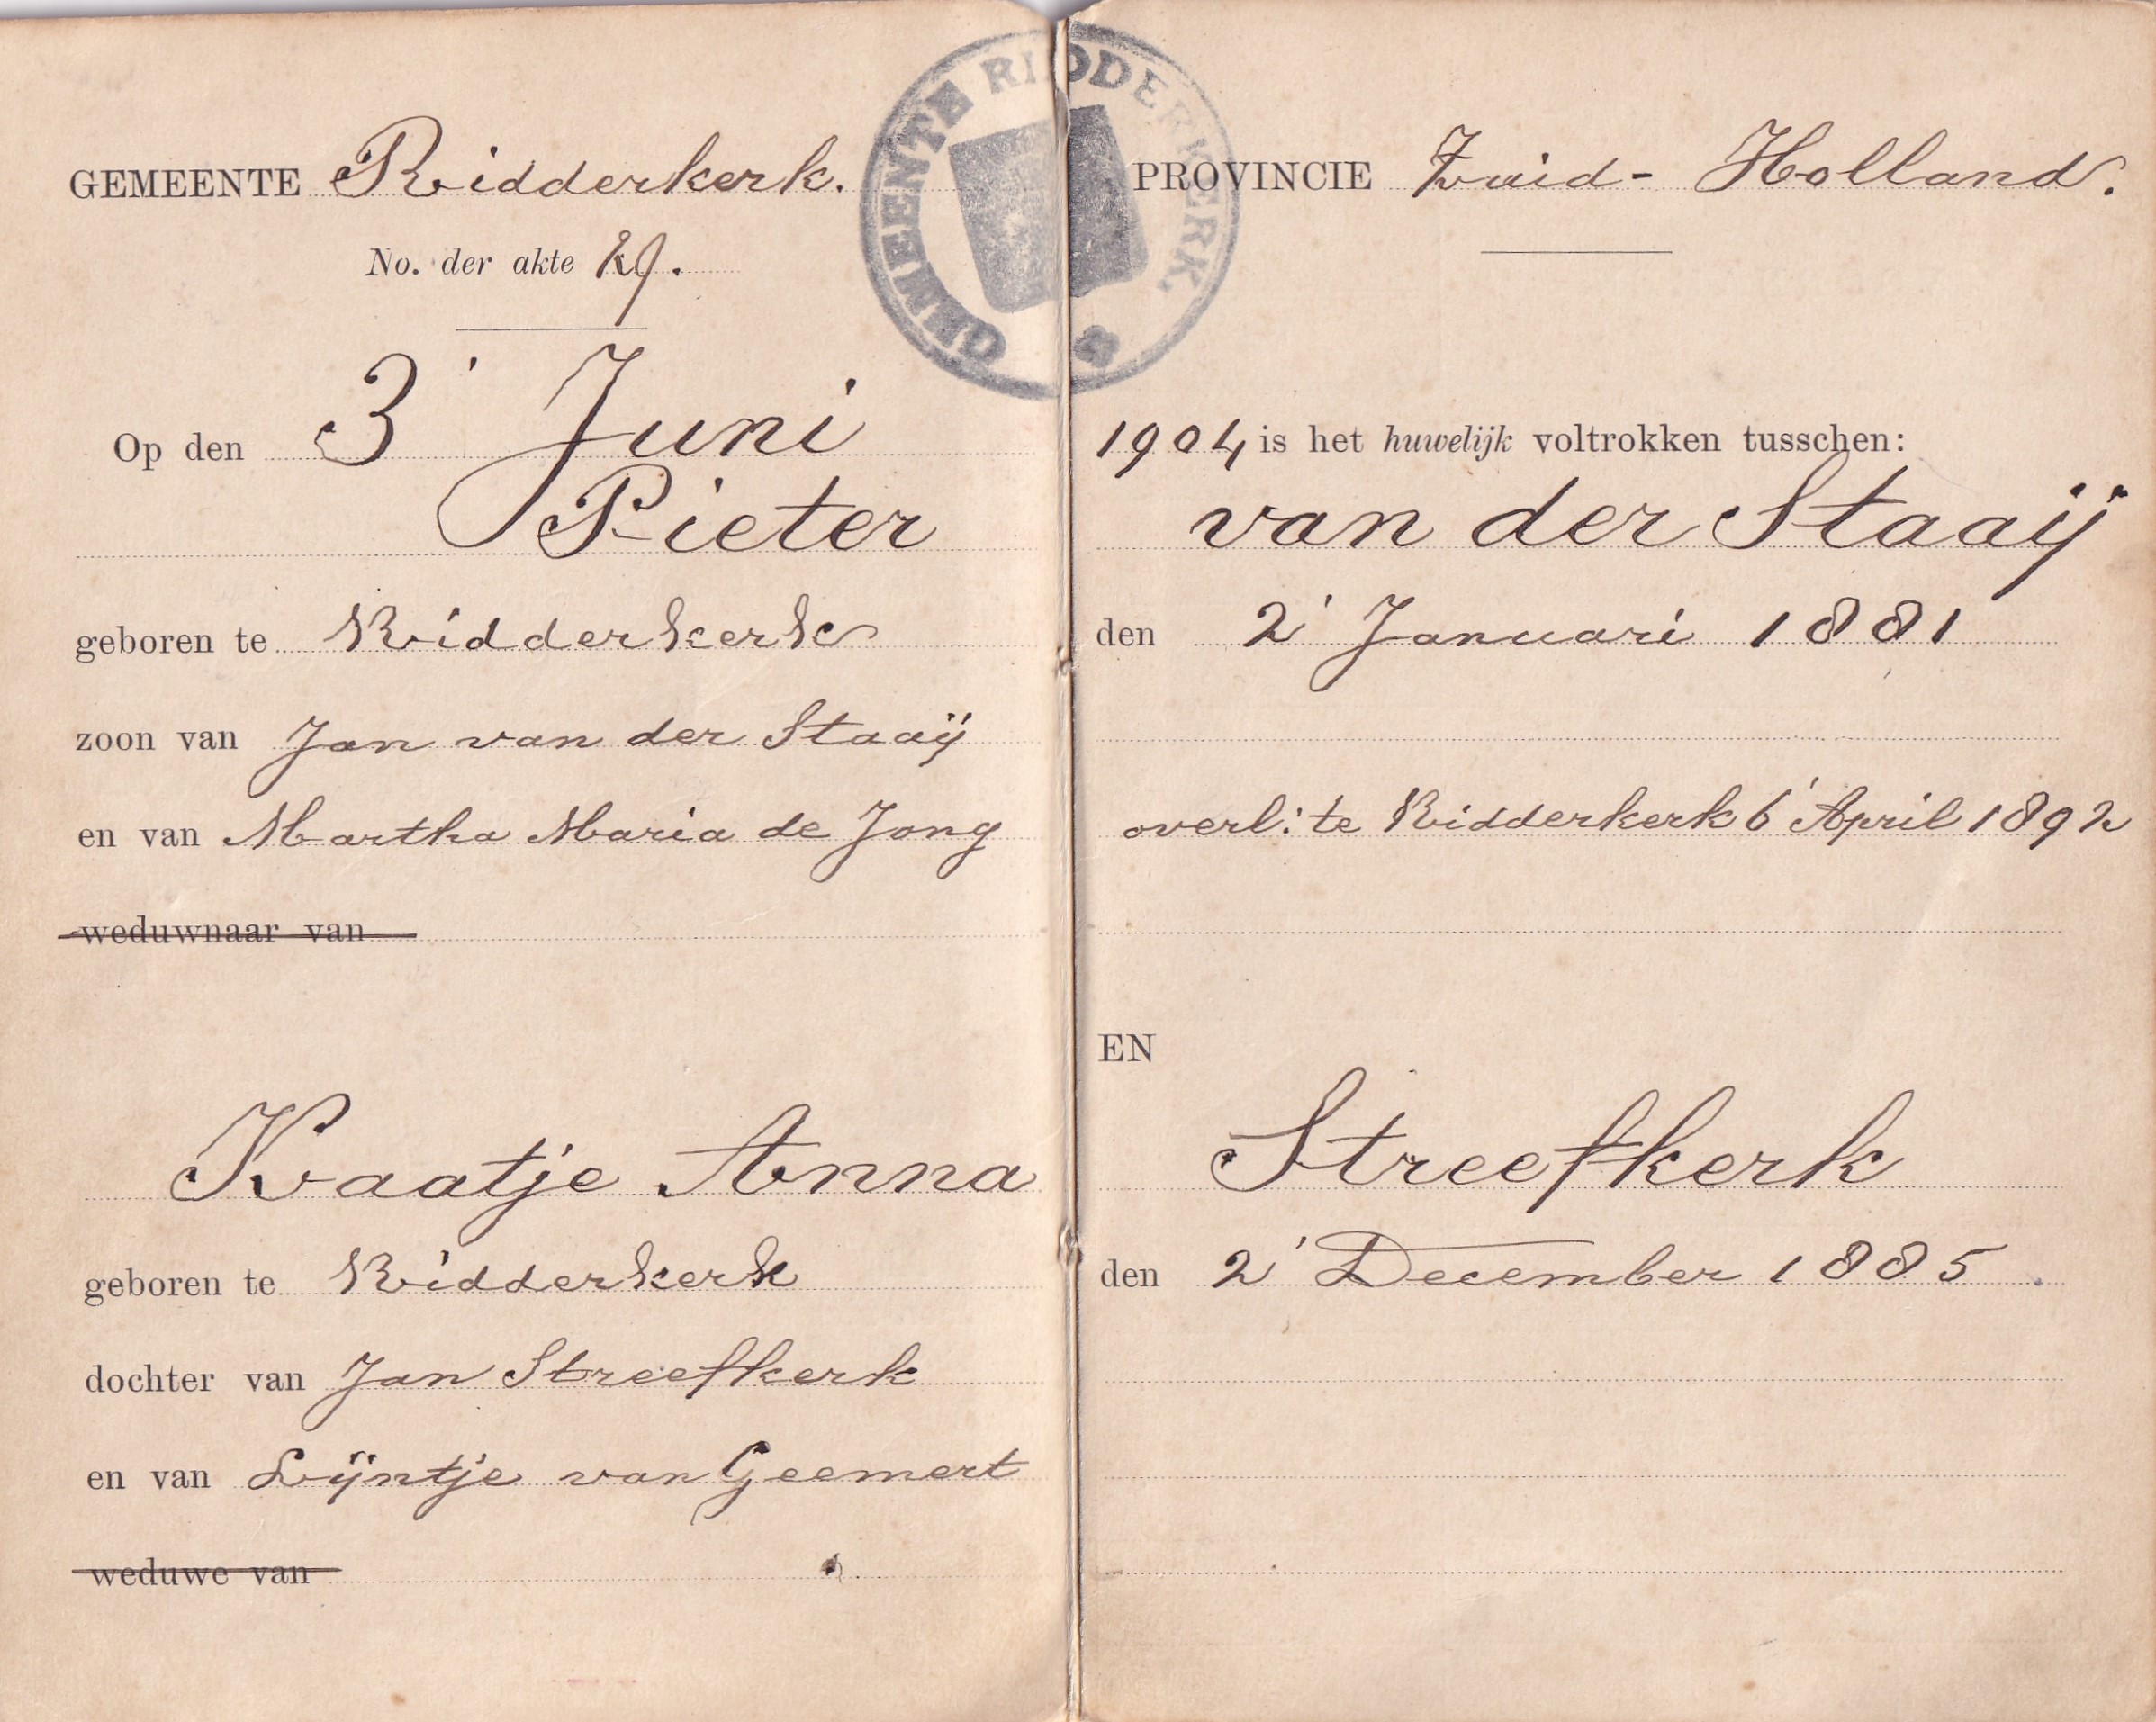 GEMEENTE RIDDERKERK.
GEMEENTE Ridderkerk. PROVINCIE Zuid-Holland.
No. der akte 29.
Op den 3' Juni 1904 is het huwelijk voltrokken tusschen:
Pieter van der Staaij
geboren te Ridderkerk den 2' Januari 1881
zoon van Jan van der Staaij
en van Martha Maria de Jong overl: te Ridderkerk 6' April 1892
weduwnaar van
EN
Kaatje Anna Streefkerk
geboren te Ridderkerk den 2' December 1885.
dochter van Jan Streefkerk
en van Lijntje van Geemert
weduwe van